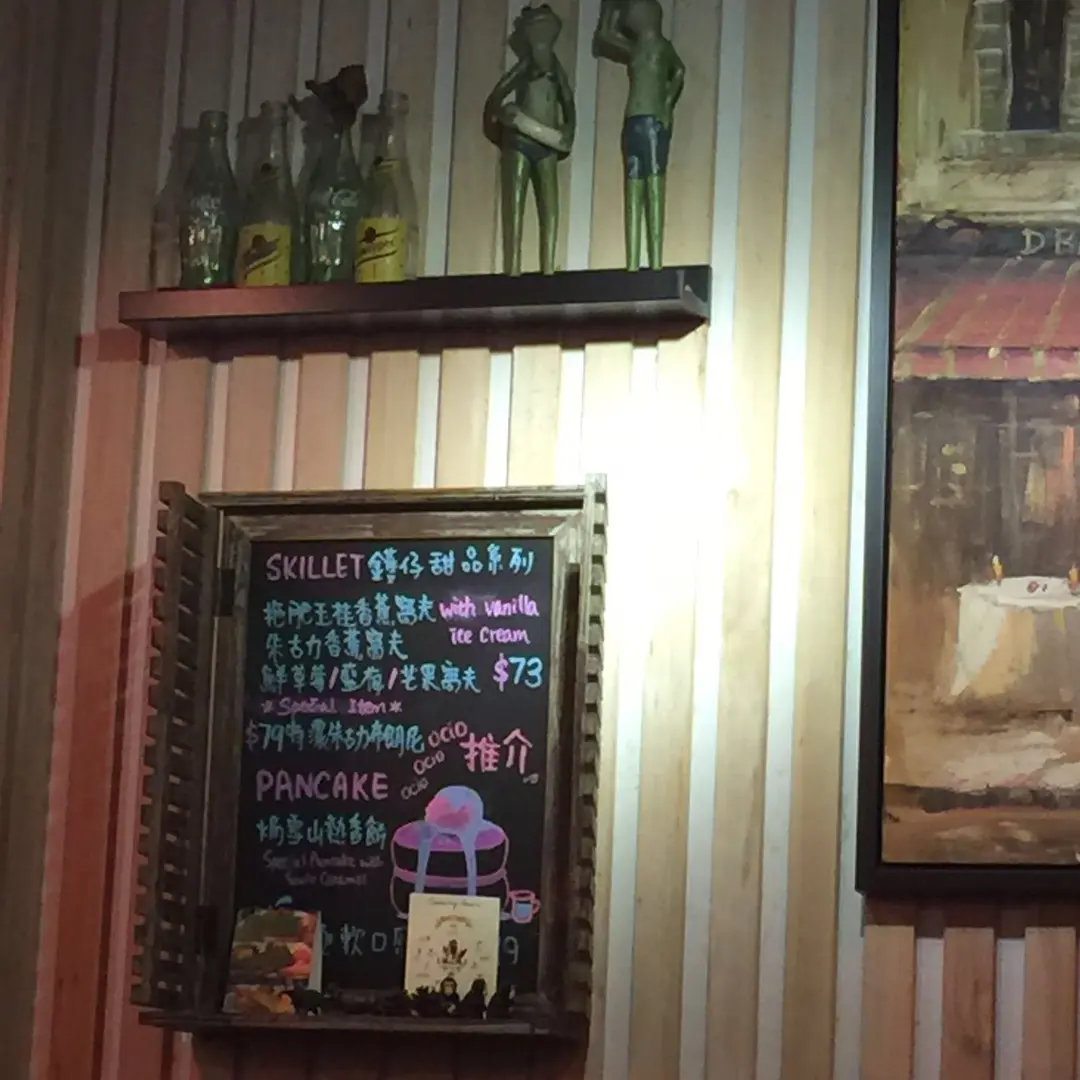 Coca-Cola
Schweppes
DR
SKILLET 鑊仔甜品系列
拖肥玉桂香蕉窩夫 with vanilla
Ice Cream
朱古力香蕉窩夫
鮮草莓/藍莓/芒果窩夫 $73
*Special Item*
$79特濃朱古力布朗尼
OCIO OCIO OCIO 推介
PANCAKE
焗雪山熱香餅
Special Pancake with
軟口
9